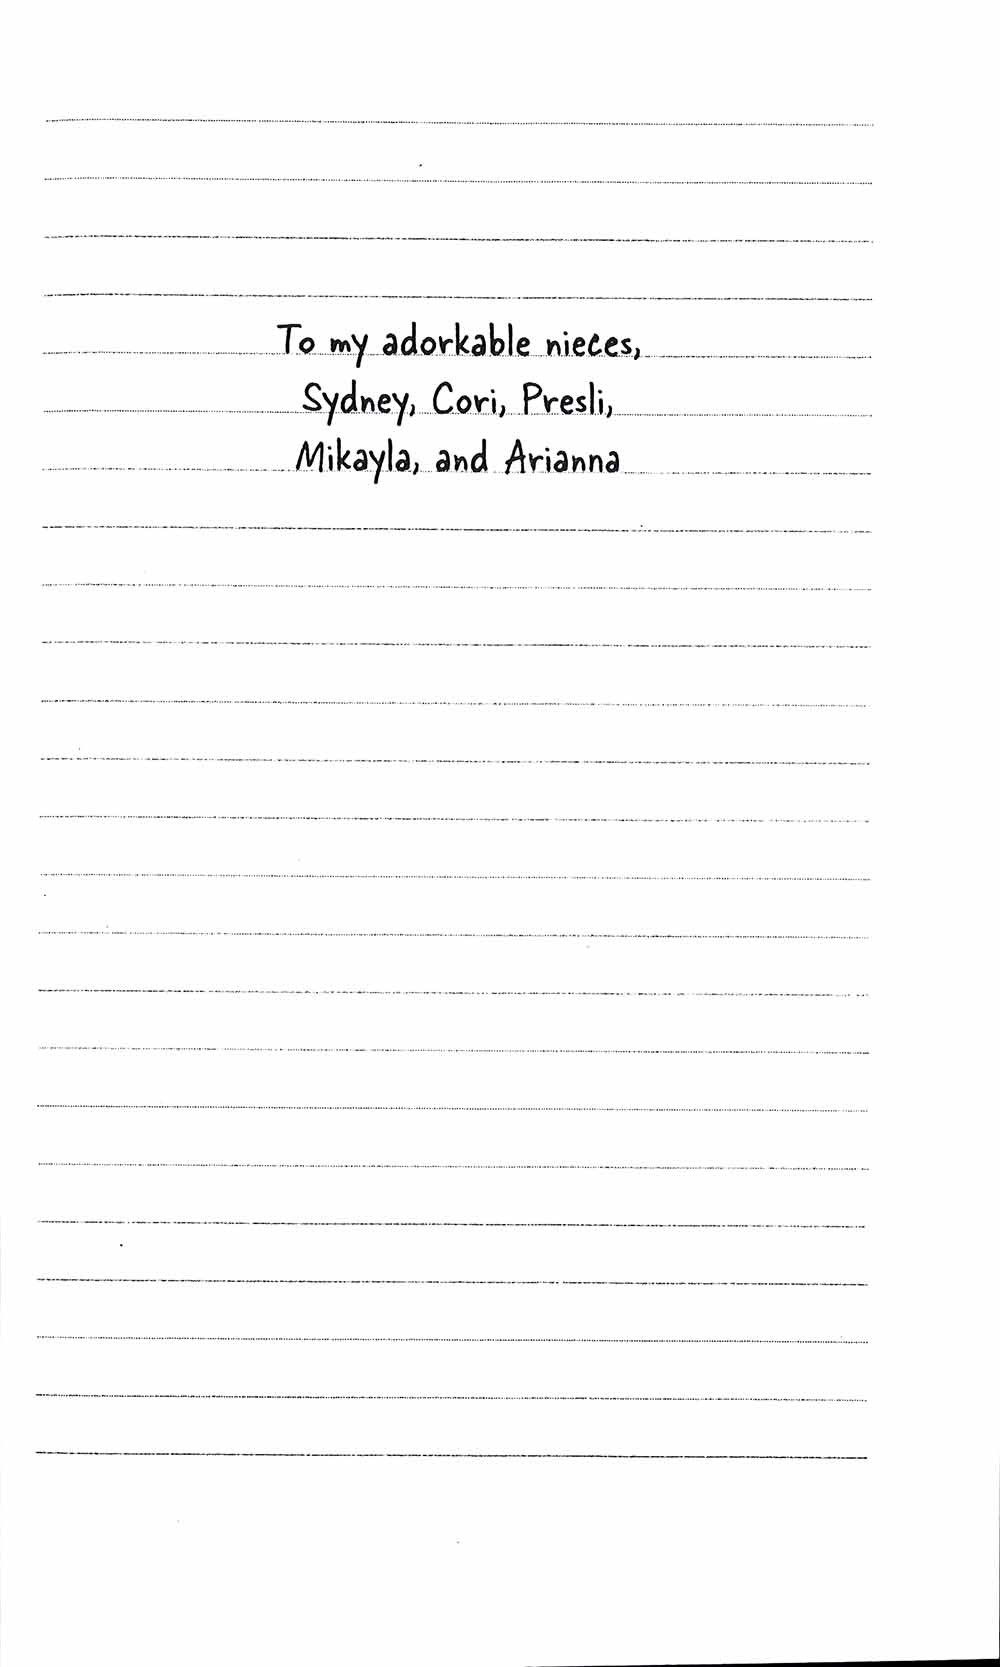 To my adorkable nieces,
Sydney, Cori, Presli,
Mikayla, and Arianna